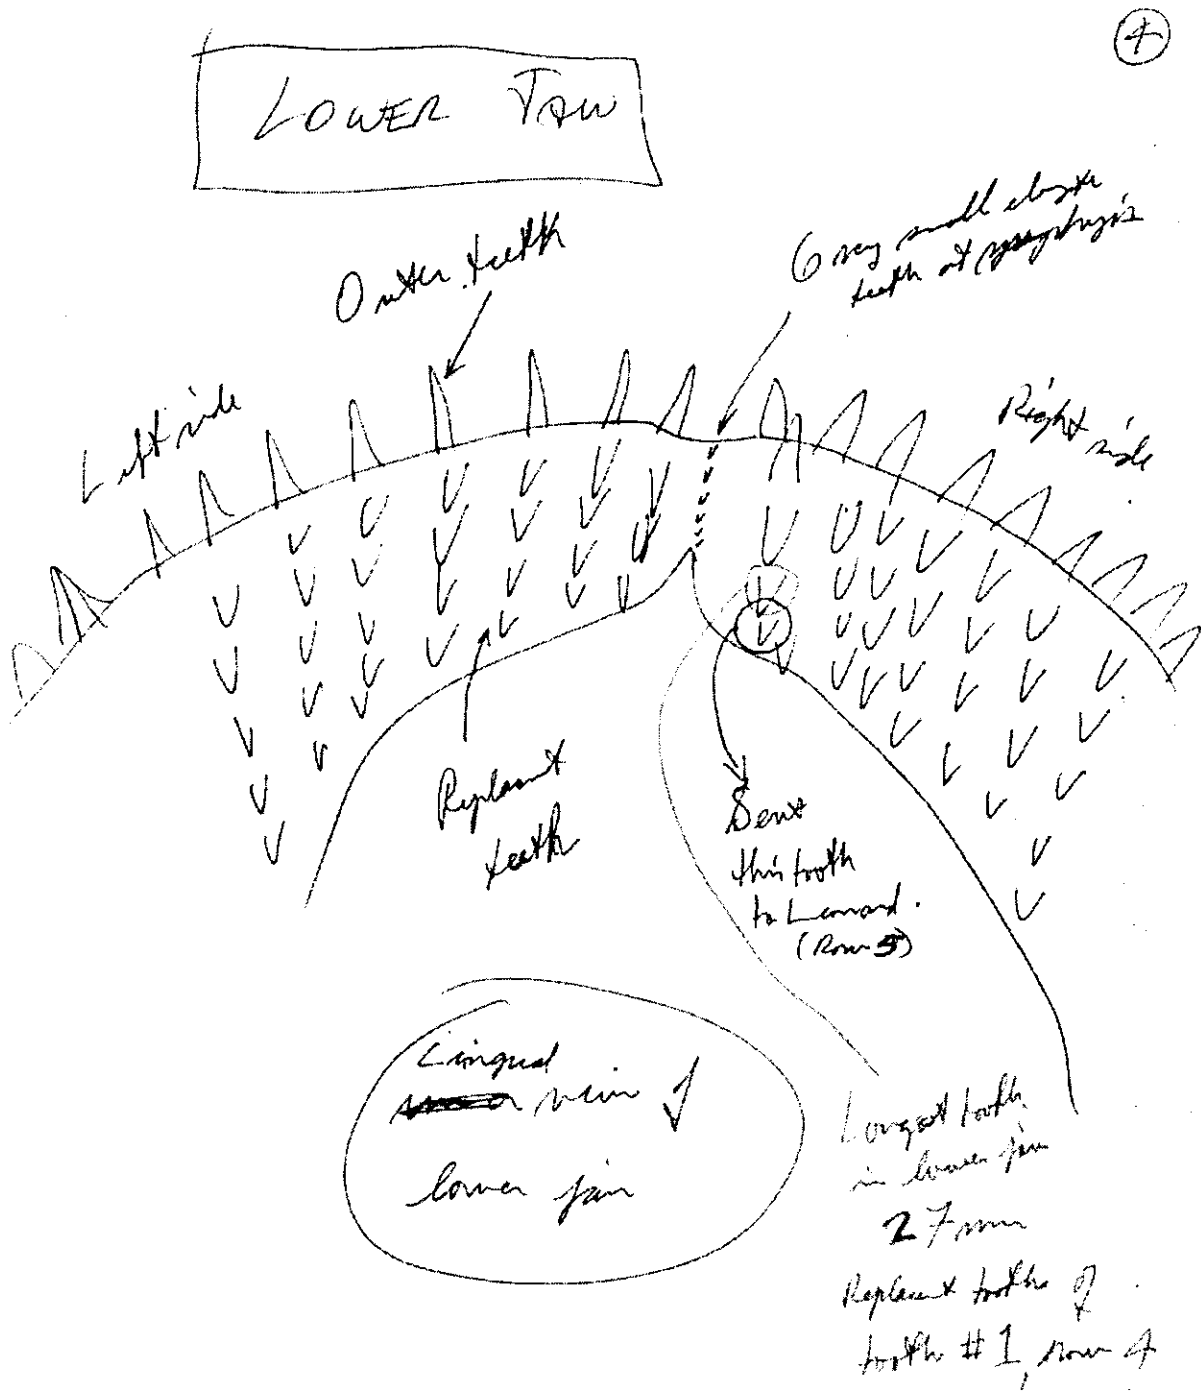 4
LOWER JAW
Outer teeth
6 very small
teeth at symphysis
Left side
Right
side
Replacmt
teeth
Sent
this tooth
to Leonard.
(Row 5)
Lingual
view of
lower jaw
Longest tooth
in lower jaw
27 mm
Replacmt tooth of
tooth #1, row 4